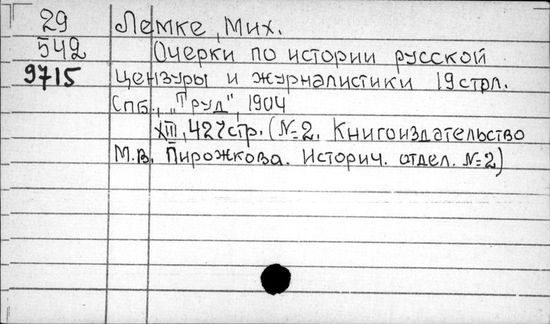 29 Лемке, Мих.
542 Очерки по истории русской
9715 цензуры и журналистики 19 стрл.
Спб., "Труд", 1904
XIII, 427 стр. (№2. Книгоиздательство
М.В. Пирожкова. Историч. отдел. №2)